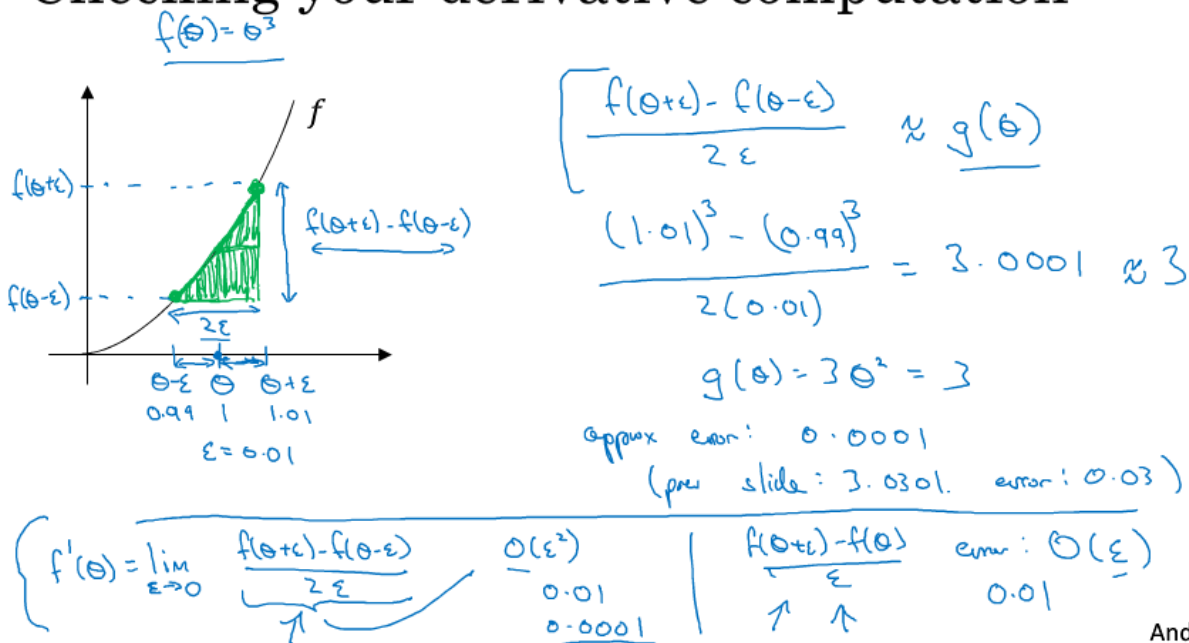 Checking your derivative computation
f(θ) = θ³
f
f(θ+ε)
f(θ-ε)
f(θ+ε) - f(θ-ε)
2ε
θ-ε θ θ+ε
0.99 1 1.01
ε = 0.01
f(θ+ε) - f(θ-ε) / 2ε ≈ g(θ)
(1.01)³ - (0.99)³ / 2(0.01) = 3.0001 ≈ 3
g(θ) = 3θ² = 3
approx error: 0.0001
(prev slide: 3.0301. error: 0.03)
f'(θ) = lim ε→0 f(θ+ε) - f(θ-ε) / 2ε O(ε²)
0.01
0.0001
f(θ+ε) - f(θ) / ε error: O(ε)
0.01
And